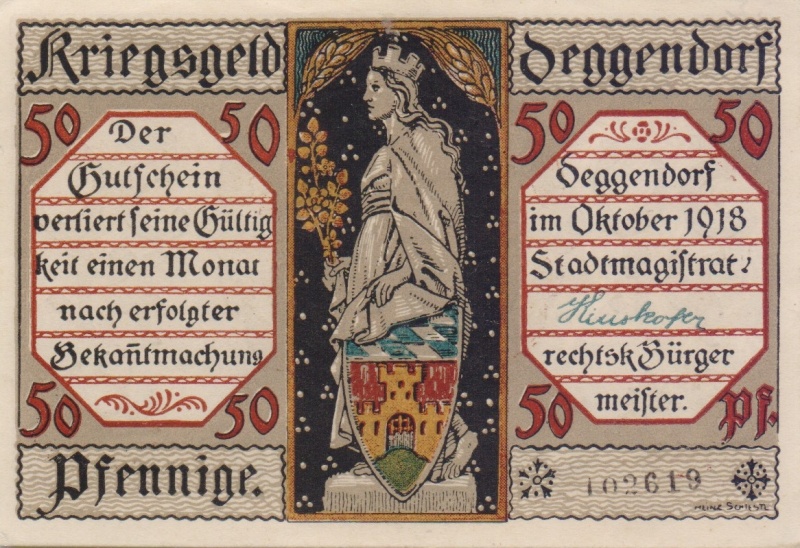 Kriegsgeld
50 50
Der
Gutschein
verliert seine Gültig
keit einen Monat
nach erfolgter
Bekan̄tmachung
50 50
Pfennige.
Deggendorf
50 50
Deggendorf
im Oktober 1918
Stadtmagistrat:
rechtsk Bürger
meister.
50 Pf.
102619
HEINZ SCHIESTL